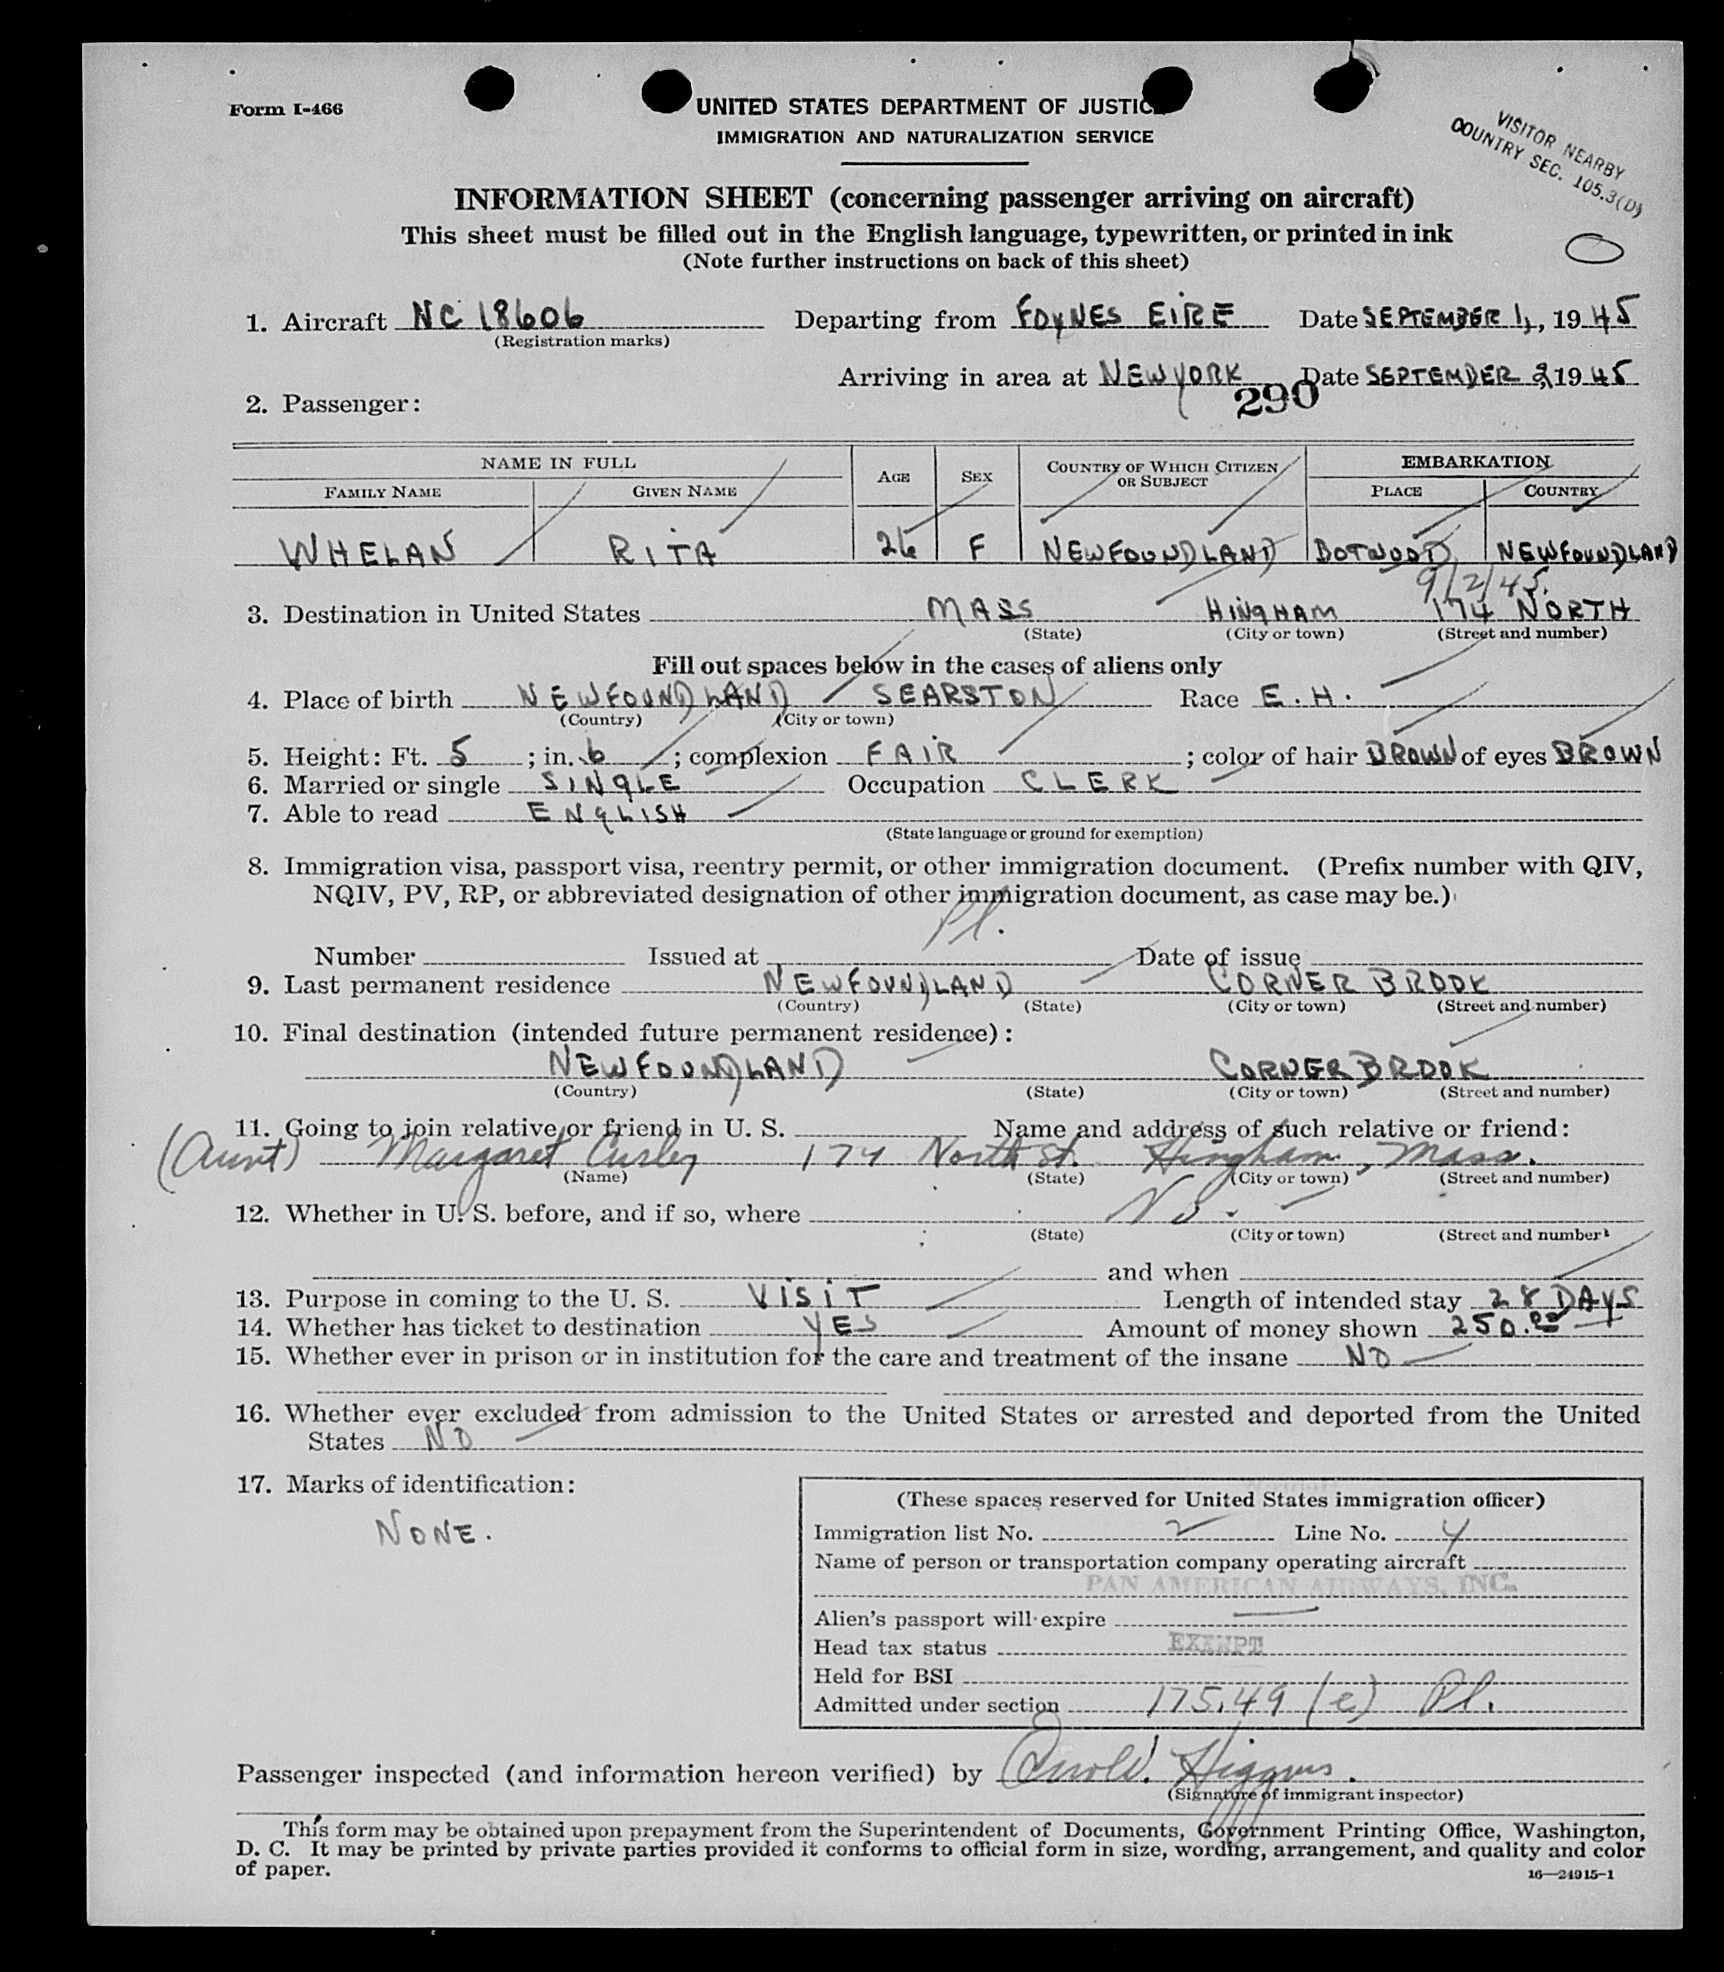 Form I-466
UNITED STATES DEPARTMENT OF JUSTIC
IMMIGRATION AND NATURALIZATION SERVICE
VISITOR NEARBY
COUNTRY SEC. 105.3(D)
INFORMATION SHEET (concerning passenger arriving on aircraft)
This sheet must be filled out in the English language, typewritten, or printed in ink
(Note further instructions on back of this sheet)
1. Aircraft NC 18606 Departing from FOYNES EIRE Date SEPTEMBER 1, 1945
(Registration marks)
Arriving in area at NEW YORK Date SEPTEMBER 2, 1945
290
2. Passenger:
NAME IN FULL AGE SEX COUNTRY OF WHICH CITIZEN OR SUBJECT EMBARKATION
FAMILY NAME GIVEN NAME PLACE COUNTRY
WHELAN RITA 26 F NEWFOUNDLAND BOTWOOD NEWFOUNDLAND
9/2/45.
3. Destination in United States MASS HINGHAM 174 NORTH
(State) (City or town) (Street and number)
Fill out spaces below in the cases of aliens only
4. Place of birth NEWFOUNDLAND SEARSTON Race E.H.
(Country) (City or town)
5. Height: Ft. 5; in. 6; complexion FAIR; color of hair BROWN of eyes BROWN
6. Married or single SINGLE Occupation CLERK
7. Able to read ENGLISH
(State language or ground for exemption)
8. Immigration visa, passport visa, reentry permit, or other immigration document. (Prefix number with QIV,
NQIV, PV, RP, or abbreviated designation of other immigration document, as case may be.)
Pl.
Number Issued at Date of issue
9. Last permanent residence NEWFOUNDLAND CORNER BROOK
(Country) (State) (City or town) (Street and number)
10. Final destination (intended future permanent residence):
NEWFOUNDLAND CORNER BROOK
(Country) (State) (City or town) (Street and number)
11. Going to join relative or friend in U. S. Name and address of such relative or friend:
(Aunt) Margaret Curley 174 North St. Hingham, Mass.
(Name) (State) (City or town) (Street and number)
12. Whether in U. S. before, and if so, where No.
(State) (City or town) (Street and number)
and when
13. Purpose in coming to the U. S. VISIT Length of intended stay 28 DAYS
14. Whether has ticket to destination YES Amount of money shown 250.00
15. Whether ever in prison or in institution for the care and treatment of the insane NO
16. Whether ever excluded from admission to the United States or arrested and deported from the United
States NO
17. Marks of identification:
NONE.
(These spaces reserved for United States immigration officer)
Immigration list No. 2 Line No. 4
Name of person or transportation company operating aircraft
PAN AMERICAN AIRWAYS, INC.
Alien's passport will expire
Head tax status EXEMPT
Held for BSI
Admitted under section 175.49 (e) Pl.
Passenger inspected (and information hereon verified) by Higgins.
(Signature of immigrant inspector)
This form may be obtained upon prepayment from the Superintendent of Documents, Government Printing Office, Washington,
D. C. It may be printed by private parties provided it conforms to official form in size, wording, arrangement, and quality and color
of paper.
16—24915-1